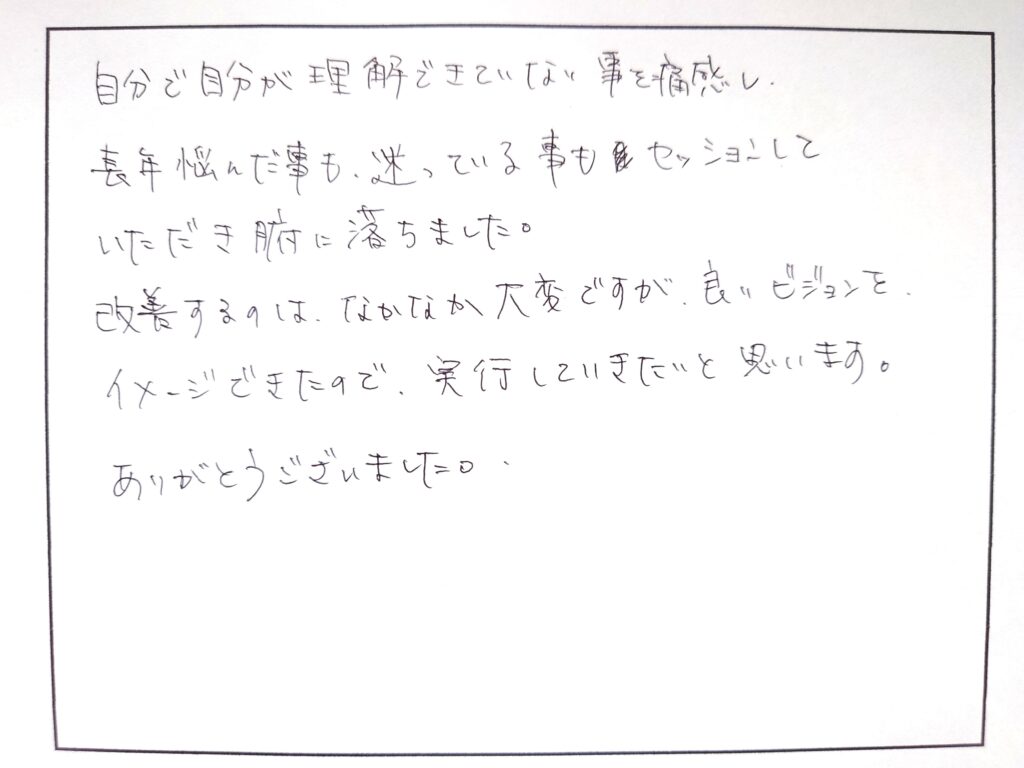 自分で自分が理解できていない事を痛感し、
長年悩んだ事も、迷っている事もセッションして
いただき腑に落ちました。
改善するのは、なかなか大変ですが、良いビジョンを、
イメージできたので、実行していきたいと思います。
ありがとうございました。